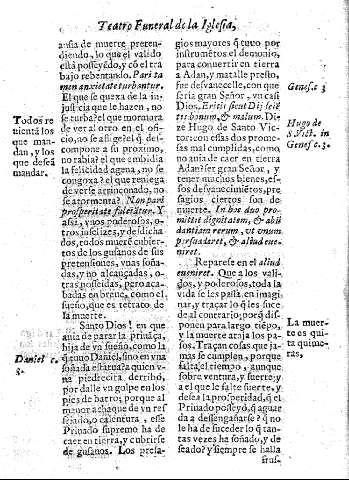 Teatro Funeral de la Iglesia,
ansia de muerte preten-
diendo, lo que el valido
està posseyẽdo, y cõ el tra
bajo rebentando. Pari ta
men anxietate turbantur.
El que se quaxa de la in-
justicia que le hazen, no
se turba? el que morirà
de ver al otro en el ofi-
cio, no se aflige? el q̃ des-
compone a su proximo,
no rabia? el que embidia
la felicidad agena, no se
congoxa? el que reniega
de verse arrinconado, no
se atormenta? Non pari
prosperitate fulciũtur. Y
assi, vnos poderosos, o-
tros infelizes, y de dicha-
dos, todos muerẽ cubier-
tos de los gusanos de sus
pretensiones, vnas soña-
das, y no alcançadas, o-
tras posseidas, pero aca-
badas en breue, como el
sueño, que es retrato de
la muerte.
Santo Dios! en que
auia de parar la priuãça,
hija de vn sueño, como la
que uno Daniel, sino en vna
soñada estatua? a quien v-
na piedrecita derribó,
por dalle vn golpe en los
pies de barro; porque al
menor achaque de vn res
friado, o calentura, esse
Priuado supremo ha de
caer en tierra, y cubrirse
de gusanos. Los presa-
Todos re
tientã los
que man-
dan, y los
que deseã
mandar.
Daniel c.
3.
gios mayores q̃ tuvo por
instrumẽtos el demonio,
para conuertir en tierra
a Adan, y matalle presto,
fue desvanecelle, con que
seria gran Señor, vn casi
Dios. Eritis sicut Dij sciẽ
tes bonum, & malum. Di-
ze Hugo de Santo Vic-
tor: con essas dos prome-
sas mal cumplidas, como
no auia de caer en tierra
Adan? ser gran Señor, y
tener muchos bienes, es-
sos desvanecimiẽtos, pre-
sagios ciertos son de
muerte. In hoc duo pro-
mittit dignitatem, & abũ
dantiam rerum, vt vnum
persuaderet, & aliud eue-
niret.
Reparese en el aliud
eueniret. Que a los vali-
dos, y poderosos, toda la
vida se les passa en imagi-
nar, y traçar lo q̃ les suce-
de al contrario; porq̃ dis-
ponen para largo tiẽpo,
y la muerte ataja los pa-
sos. Traçan cosas que ja-
mas se cumplen, porque
falta el tiempo, aunque
sobre ventura, y suerte; y
a el que le falte suerte, y
desea la prosperidad, q̃ el
Priuado posee, q̃ aguar-
da a desengañarse? q̃ no
le ha de suceder lo q̃ tan-
tas vezes ha soñado, y de
seado? y siempre se halla
frus-
Genes. c. 3
Hugo de
S. Vict. in
Genes. c. 3.
La muer-
te es qui
ta quime-
ras,